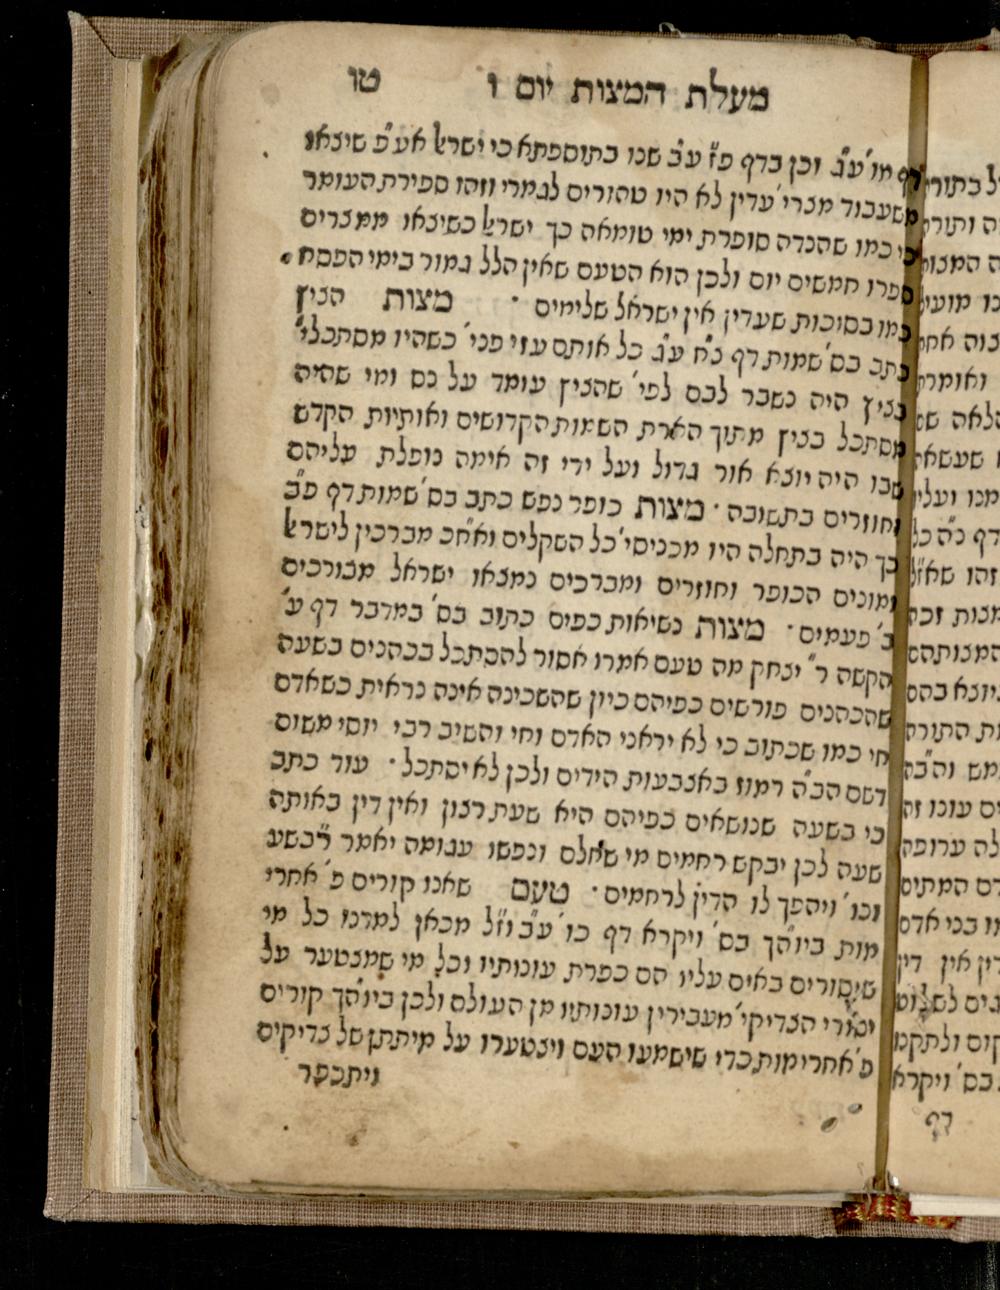 מעלת המצות יום ו טו
דף מו' ע"ג וכן בדף פ"ז ע"ב שכו בתוספתא כי ישראל אע"פ שיצאו
משעבוד מצרי' עדין לא היו טהורים לגמרי וזהו ספירת העומר
כי כמו שהנדה סופרת ימי טומאה כך ישראל כשיצאו ממצרים
ספרו חמשים יום ולכן הוא הטעם שאין הלל גמור בימי הפסח
כמו בסוכות שעדין אין ישראל שלימים · מצות הציץ
כתב בס' שמות דף כ"ח ע"ג כל אותם עזי פני' כשהיו מסתכלי'
בציץ היה נשבר לבם לפי' שהציץ עומד על נס ומי שהיה
מסתכל בציץ מתוך הארת השמות הקדושים ואותיות הקדש
שבו היה יוצא אור גדול ועל ידי זה אימה נופלת עליהם
וחוזרים בתשובה · מצות כופר נפש כתב בס' שמות דף פ"ב
כך היה בתחלה היו מכניסי' כל השקלים ואח"כ מברכין לישראל
ומונים הכופר וחוזרים ומברכים נמצאו ישראל מבורכים
ב' פעמים · מצות נשיאות כפים כתוב בס' במדבר דף ע'
הקשה ר' יצחק מה טעם אמרו אסור להסתכל בכהנים בשעה
שהכהנים פורשים כפיהם כיון שהשכינה אינה נראית כשאדם
חי כמו שכתוב כי לא יראני האדם וחי והשיב רבי יוסי משום
דשם הב"ה רמוז באצבעות הידים ולכן לא יסתכל · עוד כתב
כי בשעה שנושאים כפיהם היא שעת רצון ואין דין באותה
שעה לכן יבקש רחמים מי שחלם ונפשו עגומה יאמר רבש"ע
וכו' ויהפך לו הדין לרחמים · טעם שאנו קורים פ' אחרי
מות ביו"הך בס' ויקרא דף כו' ע"ב וז"ל מכאן למדנו כל מי
שיסורים באים עליו הם כפרת עונותיו וכל מי שמצטער על
יסורי הצדיקי' מעבירין עונותיו מן העולם ולכן ביו"הך קורים
פ' אחרי מות כדי שישמעו העם ויצטערו על מיתתן של צדיקים
ויתכפר